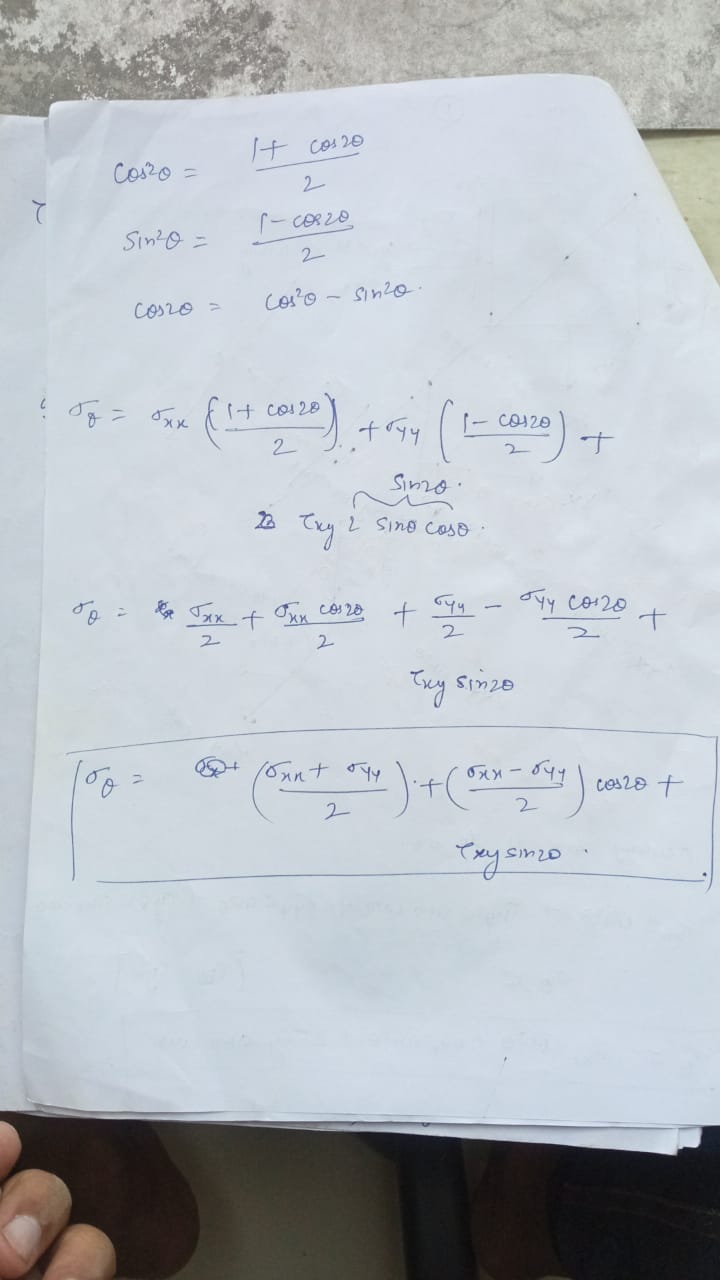 cos²θ = (1 + cos2θ)/2
sin²θ = (1 - cos2θ)/2
cos2θ = cos²θ - sin²θ.
σθ = σxx ((1 + cos2θ)/2) + σyy ((1 - cos2θ)/2) +
sin2θ.
τxy 2 sinθ cosθ.
σθ = σxx/2 + σxx cos2θ/2 + σyy/2 - σyy cos2θ/2 +
τxy sin2θ
σθ = ((σxx + σyy)/2) + ((σxx - σyy)/2) cos2θ +
τxy sin2θ.